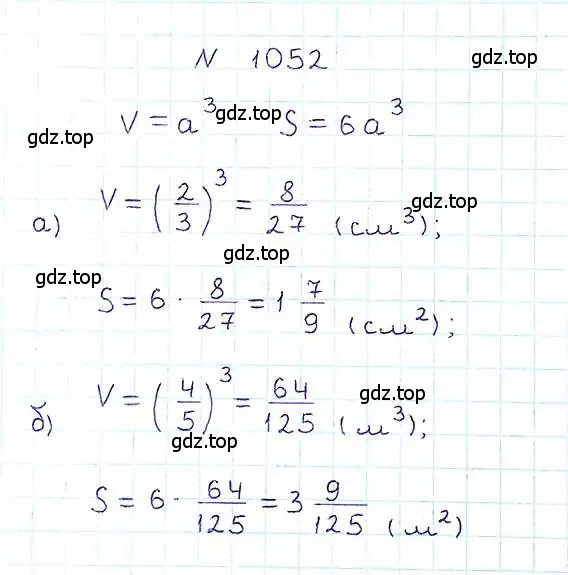 N 1052 gdz.top
V = a³ gdz.top S = 6a³
gdz.top
а) V = (2/3)³ = 8/27 (см³); gdz.top
gdz.top
gdz.top
S = 6 · 8/27 = 1 7/9 (см²);
б) V = (4/5)³ = 64/125 (м³); gdz.top
gdz.top
S = 6 · 64/125 = 3 9/125 (м²)